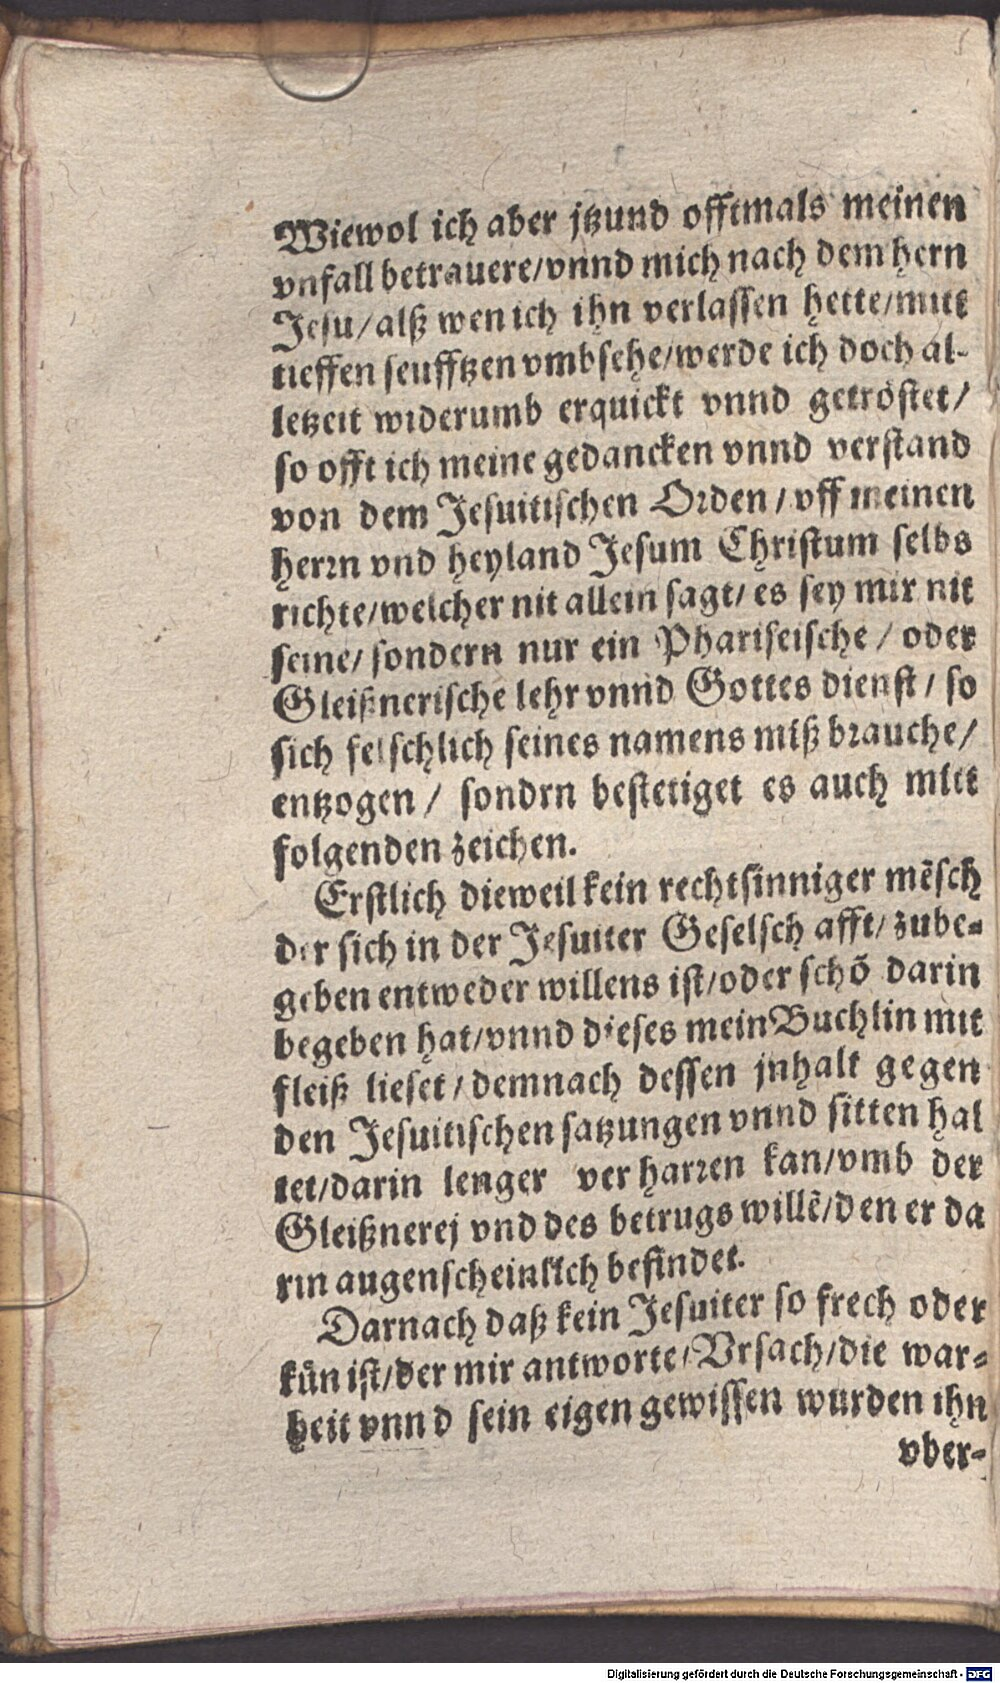 Wiewol ich aber jtzund offtmals meinen
vnfall betrauere/vnnd mich nach dem hern
Jesu/alß wen ich ihn verlassen hette/mitt
tieffen seufftzen vmbsehe/werde ich doch al-
letzeit widerumb erquickt vnnd getröstet/
so offt ich meine gedancken vnnd verstand
von dem Jesuitischen Orden/vff meinen
herrn vnd heyland Jesum Christum selbs
richte/welcher nit allein sagt/es sey mir nit
seine/sondern nur ein Phariseische/oder
Gleißnerische lehr vnnd Gottes dienst/so
sich felschlich seines namens miß brauche/
entzogen/sondrn bestetiget es auch mitt
folgenden zeichen.
Erstlich dieweil kein rechtsinniger mẽsch
der sich in der Jesuiter Geselsch afft/zube-
geben entweder willens ist/oder schõ darin
begeben hat/vnnd dieses mein Buchlin mit
fleiß lieset/demnach dessen jnhalt gegen
den Jesuitischen satzungen vnnd sitten hal
tet/darin lenger ver harren kan/vmb der
Gleißnerej vnd des betrugs willẽ/den er da
rin augenscheinlich befindet.
Darnach daß kein Jesuiter so frech oder
kün ist/der mir antworte/Vrsach/die war-
heit vnnd sein eigen gewissen wurden ihn
vber-
Digitalisierung gefördert durch die Deutsche Forschungsgemeinschaft - DFG